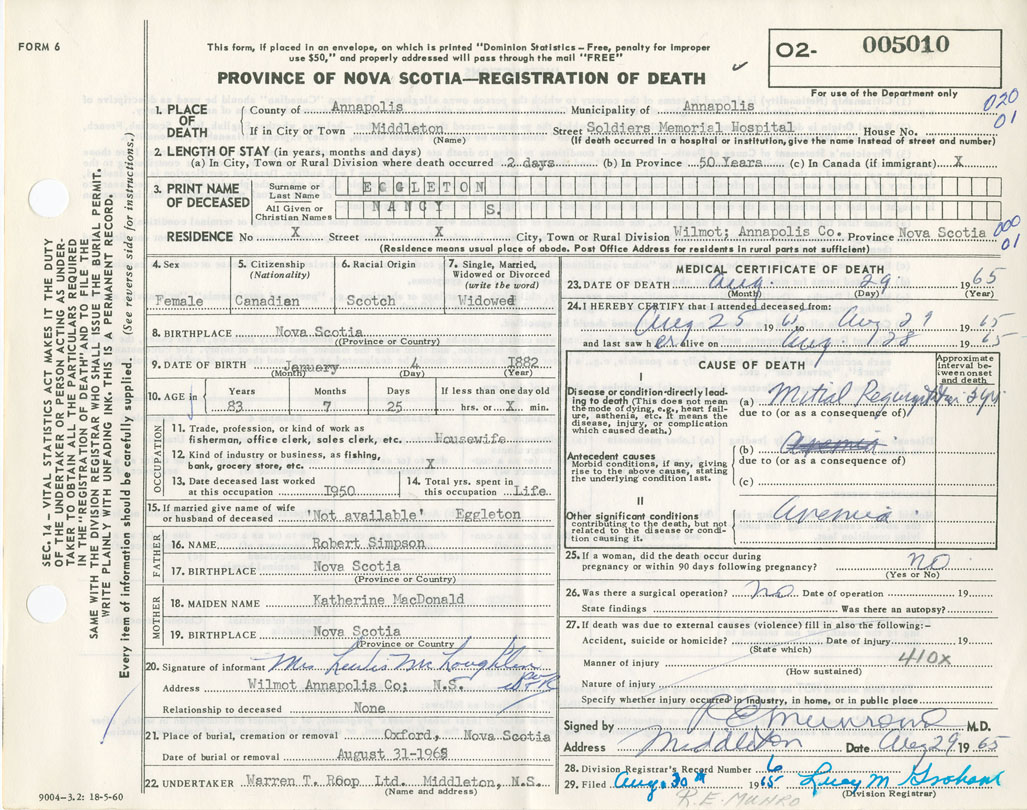 FORM 6
This form, if placed in an envelope, on which is printed "Dominion Statistics – Free, penalty for improper
use $50," and properly addressed will pass through the mail "FREE"
O2- 005010
PROVINCE OF NOVA SCOTIA—REGISTRATION OF DEATH
For use of the Department only
020
01
1. PLACE OF DEATH
County of Annapolis Municipality of Annapolis
If in City or Town Middleton Street Soldiers Memorial Hospital House No.
(Name) (If death occurred in a hospital or institution, give the name instead of street and number)
2. LENGTH OF STAY (in years, months and days)
(a) In City, Town or Rural Division where death occurred 2 days (b) In Province 50 Years (c) In Canada (if immigrant) X
3. PRINT NAME OF DECEASED
Surname or Last Name EGGLETON
All Given or Christian Names NANCY S.
RESIDENCE No X Street X City, Town or Rural Division Wilmot; Annapolis Co. Province Nova Scotia
000
01
(Residence means usual place of abode. Post Office Address for residents in rural parts not sufficient)
4. Sex Female
5. Citizenship (Nationality) Canadian
6. Racial Origin Scotch
7. Single, Married, Widowed or Divorced (write the word) Widowed
8. BIRTHPLACE Nova Scotia
(Province or Country)
9. DATE OF BIRTH January 4 1882
(Month) (Day) (Year)
10. AGE in Years 83 Months 7 Days 25 If less than one day old hrs. or X min.
OCCUPATION
11. Trade, profession, or kind of work as
fisherman, office clerk, sales clerk, etc. Housewife
12. Kind of industry or business, as fishing,
bank, grocery store, etc. X
13. Date deceased last worked
at this occupation 1950
14. Total yrs. spent in
this occupation Life
15. If married give name of wife
or husband of deceased 'Not available' Eggleton
FATHER
16. NAME Robert Simpson
17. BIRTHPLACE Nova Scotia
(Province or Country)
MOTHER
18. MAIDEN NAME Katherine MacDonald
19. BIRTHPLACE Nova Scotia
(Province or Country)
20. Signature of informant Mrs Leslie McLoughlin
Address Wilmot Annapolis Co; N.S.
Relationship to deceased None
21. Place of burial, cremation or removal Oxford, Nova Scotia
Date of burial or removal August 31-1965
22. UNDERTAKER Warren T. Roop Ltd. Middleton, N.S.
(Name and address)
MEDICAL CERTIFICATE OF DEATH
23. DATE OF DEATH Aug. 29 1965
(Month) (Day) (Year)
24. I HEREBY CERTIFY that I attended deceased from:
Aug 25 19 to Aug 29 1965
and last saw her alive on Aug. 28 1965
CAUSE OF DEATH
Approximate interval between onset and death
I
Disease or condition directly leading to death (This does not mean the mode of dying, e.g., heart failure, asthenia, etc. It means the disease, injury, or complication which caused death.)
(a) Mitial
due to (or as a consequence of)
Antecedent causes
Morbid conditions, if any, giving rise to the above cause, stating the underlying condition last.
(b) Anemia
due to (or as a consequence of)
(c)
II
Other significant conditions
contributing to the death, but not related to the disease or condition causing it.
Anemia
25. If a woman, did the death occur during
pregnancy or within 90 days following pregnancy? no
(Yes or No)
26. Was there a surgical operation? no Date of operation 19
State findings Was there an autopsy?
27. If death was due to external causes (violence) fill in also the following:–
Accident, suicide or homicide? Date of injury 19
(State which)
Manner of injury 410x
(How sustained)
Nature of injury
Specify whether injury occurred in industry, in home, or in public place
Signed by R E Munro M.D.
Address Middleton Date Aug 29 1965
28. Division Registrar's Record Number 6
29. Filed Aug. 30th 1965 Lucy M Graham
(Division Registrar)
R.E. MUNRO
SEC. 14 – VITAL STATISTICS ACT MAKES IT THE DUTY
OF THE UNDERTAKER OR PERSON ACTING AS UNDER-
TAKER TO OBTAIN ALL THE PARTICULARS REQUIRED
IN THE "REGISTRATION OF DEATH" AND TO FILE THE
SAME WITH THE DIVISION REGISTRAR WHO SHALL ISSUE THE BURIAL PERMIT.
WRITE PLAINLY WITH UNFADING INK. THIS IS A PERMANENT RECORD.
Every item of information should be carefully supplied. (See reverse side for instructions.)
9004–3.2: 18-5-60